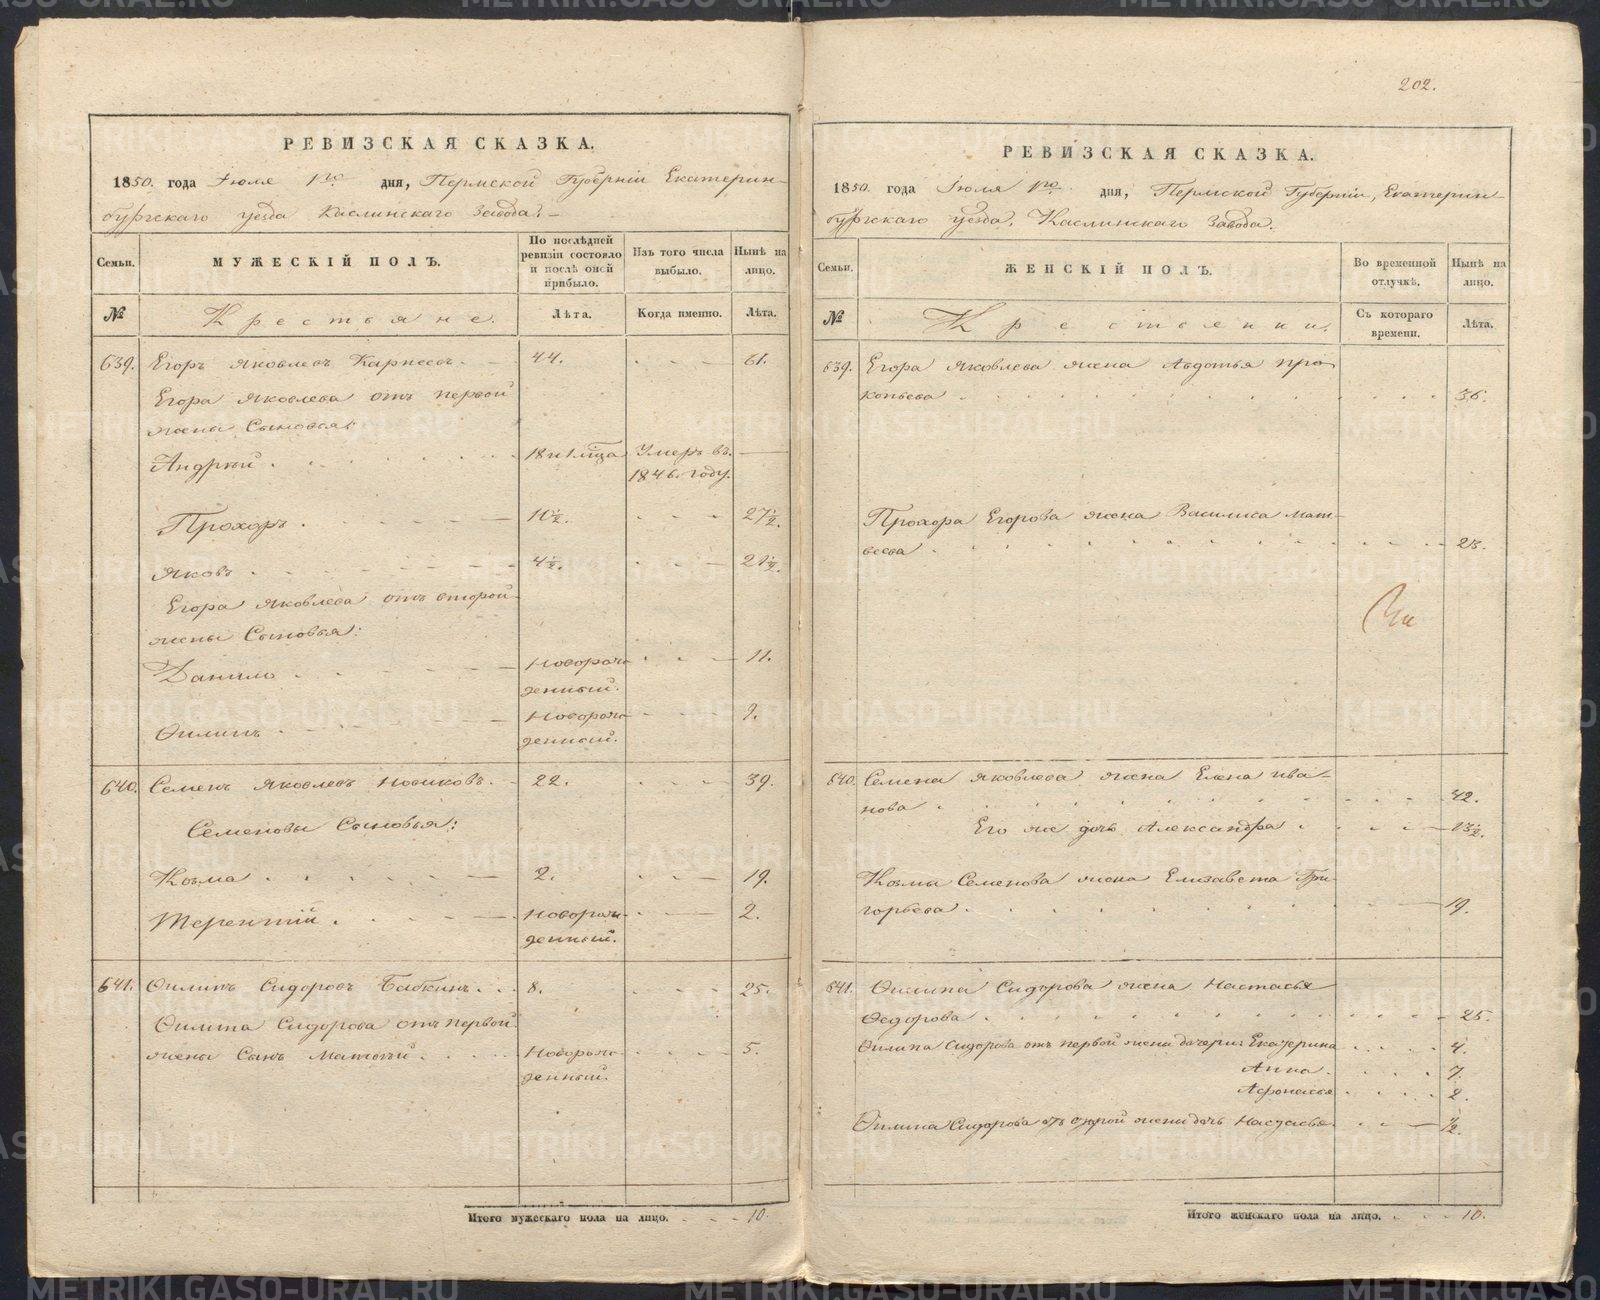 РЕВИЗСКАЯ СКАЗКА.
1850. года Іюля 1го дня, Пермской Губерніи Екатерин-
бургскаго уезда Каслинскаго Завода.
Семьи.
МУЖЕСКІЙ ПОЛЪ.
По послѣдней ревизіи состояло и послѣ оной прибыло.
Изъ того числа выбыло.
Нынѣ на лицо.
№
Крестьяне.
Лѣта.
Когда именно.
Лѣта.
639. Егоръ Яковлевъ Карпеевъ. 44. 61.
Егора Яковлева отъ первой
жены Сыновья:
Андрей 18 и 1 м҃ца Умеръ въ
1846. году.
Прохоръ 10½. 27½.
Яковъ 4½. 21½.
Егора Яковлева отъ второй
жены Сыновья:
Данило Новорож- 11.
денный.
Ѳилипъ Новорож- 9.
денный.
640. Семенъ Яковлевъ Новиковъ. 22. 39.
Семеновы Сыновья:
Козма 2. 19.
Терентій Новорож- 2.
денный.
641. Ѳилипъ Сидоровъ Бабкинъ 8. 25.
Ѳилипа Сидорова отъ первой
жены Сынъ Матвей Новорож- 5.
денный.
Итого мужескаго пола на лицо. 10.
202.
РЕВИЗСКАЯ СКАЗКА.
1850. года Іюля 1го дня, Пермской Губерніи, Екатерин
бургскаго уезда, Каслинскаго Завода.
Семьи.
ЖЕНСКІЙ ПОЛЪ.
Во временной отлучкѣ.
Нынѣ на лицо.
№
Крестьянки.
Съ котораго времени.
Лѣта.
639. Егора Яковлева жена Авдотья Про-
копьева 36.
Прохора Егорова жена Василиса Мат-
веева 23.
640. Семена Яковлева жена Елена Ива-
нова 42.
Его же дочь Александра 13½.
Козмы Семенова жена Елизавета Гри-
горьева 19.
641. Ѳилипа Сидорова жена Настасья
Ѳедорова 25.
Ѳилипа Сидорова отъ первой жены дочери: Екатерина 4.
Анна 7.
Афонасья 2.
Ѳилипа Сидорова отъ второй жены дочь Настасья ½.
Итого женскаго пола на лицо. 10.
METRIKI.GASO-URAL.RU